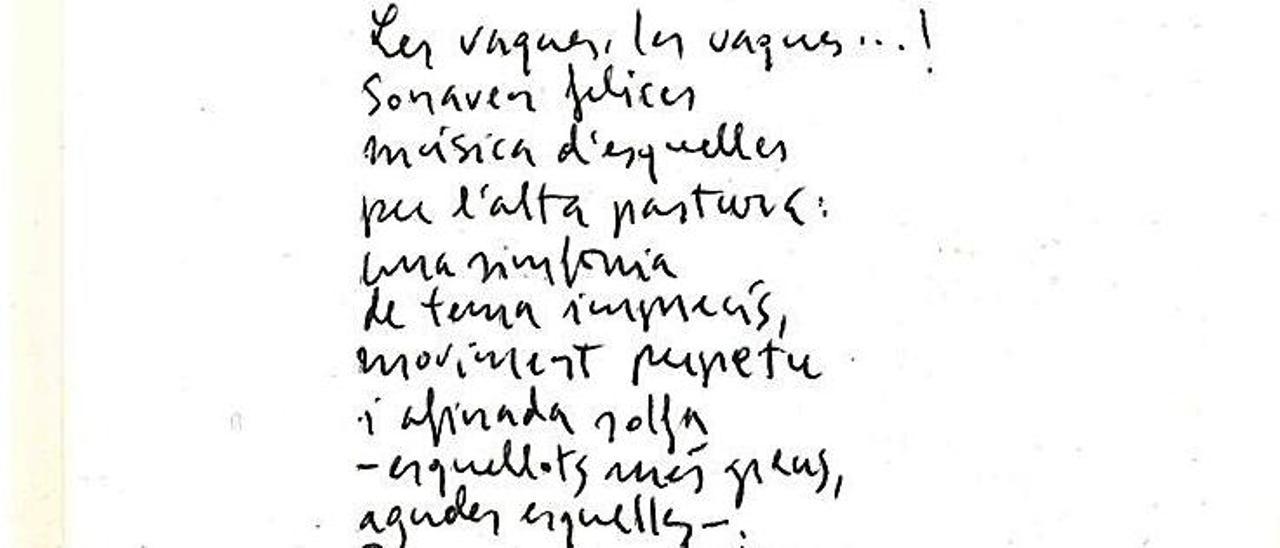 Les vaques, les vaques...!
Sonaven felices
música d'esquelles
per l'alta pastura:
una simfonia
de tema imprecís,
moviment perpetu
i afinada solfa
-esquellots més greus,
agudes esquelles-.